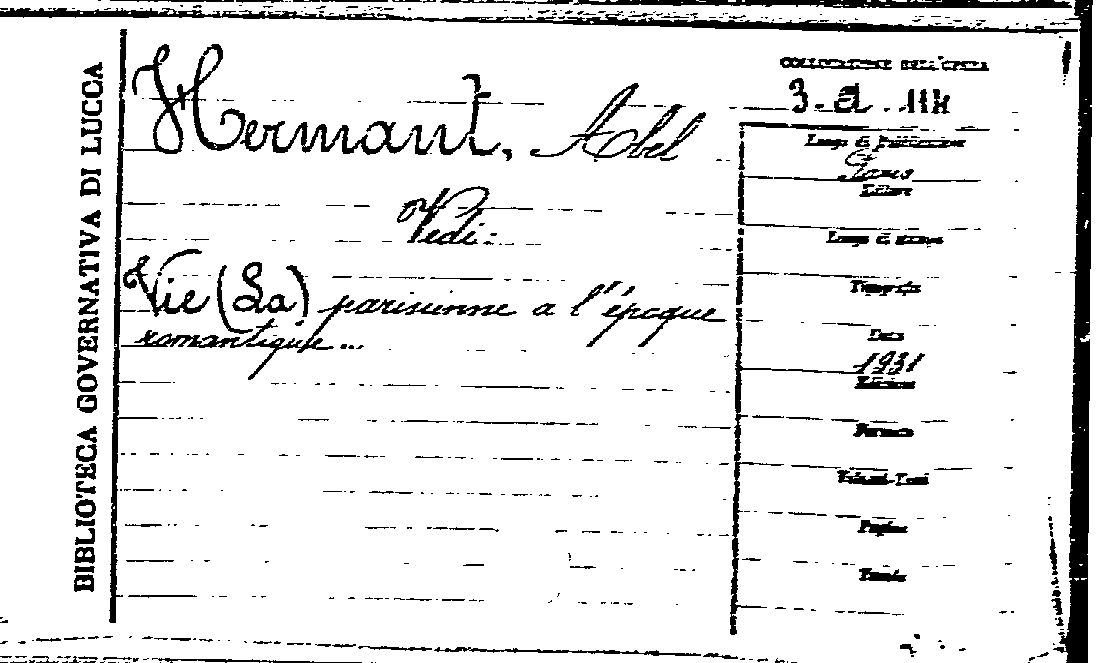 BIBLIOTECA GOVERNATIVA DI LUCCA
Hermant, Abel
Vedi:
Vie (La) parisienne a l'époque
romantique...
COLLOCAZIONE DELL'OPERA
Luogo di Pubblicazione
Paris
Editore
Luogo di stampa
Tipografia
Data
1931
Edizione
Formato
Volumi-Tomi
Pagine
Tavole